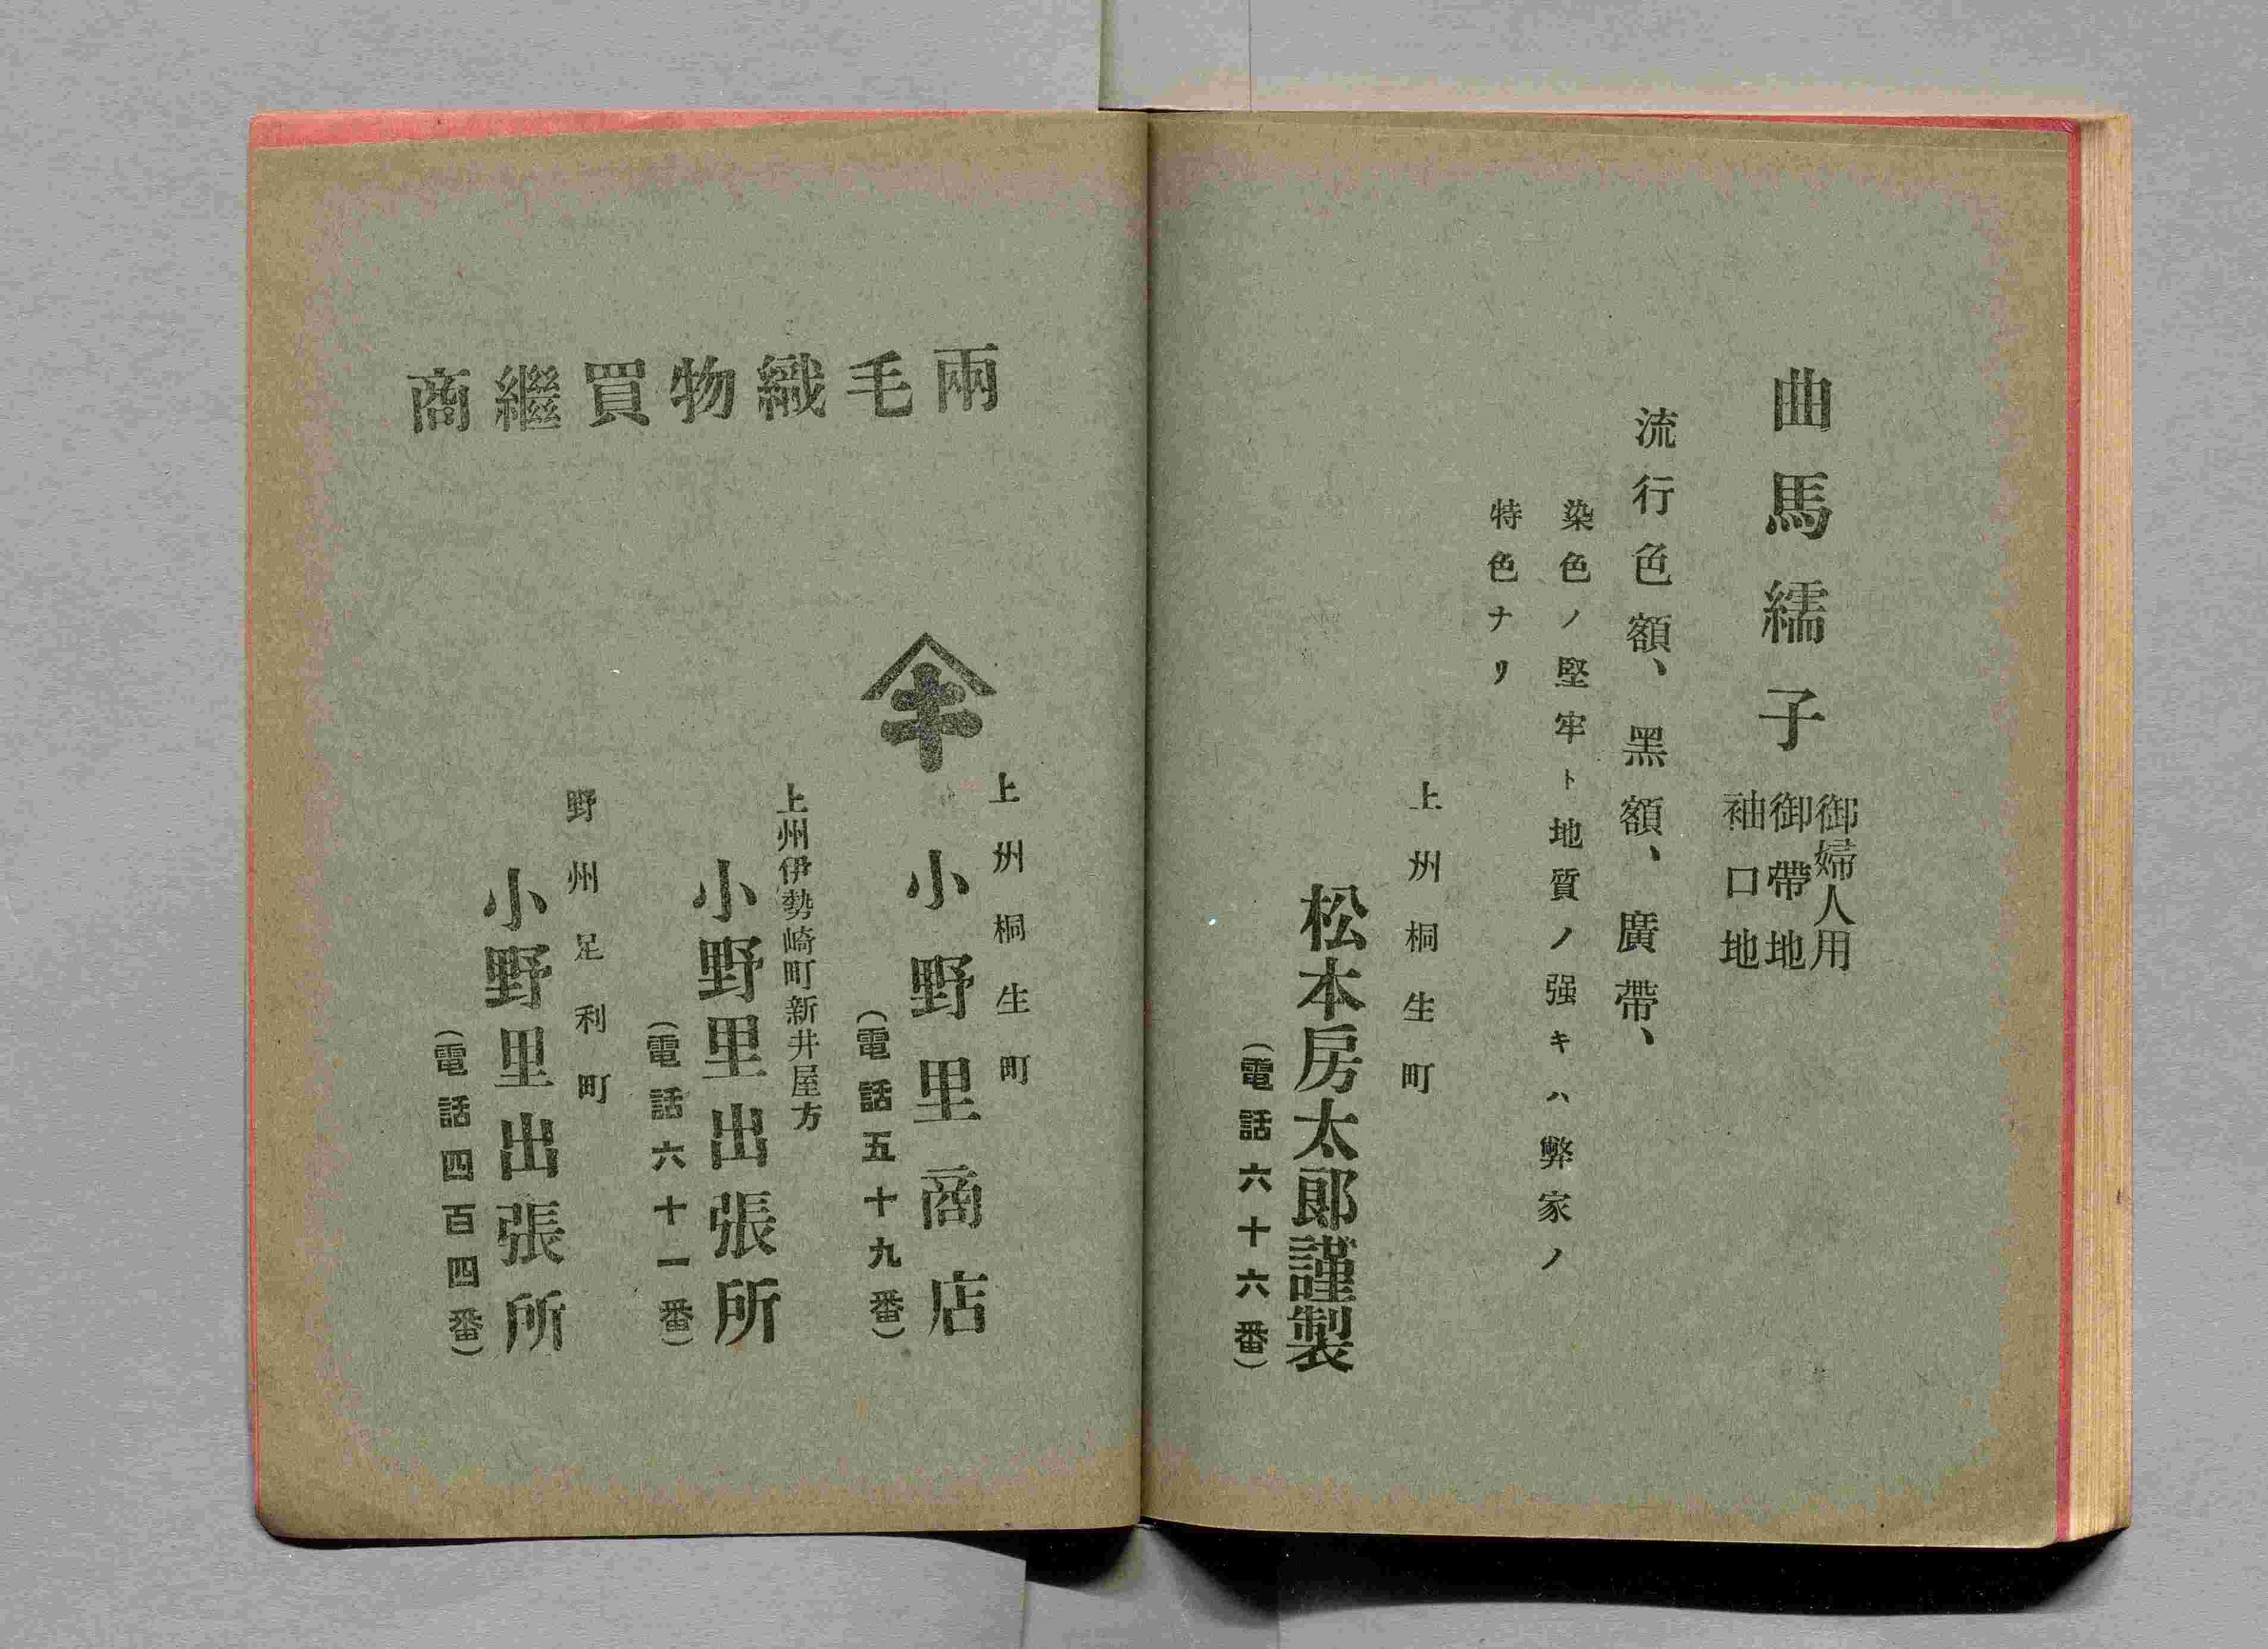 曲馬繻子
御婦人用
御帶地
袖口地
流行色額、黑額、廣帶、
染色ノ堅牢ト地質ノ强キハ弊家ノ
特色ナリ
上州桐生町
松本房太郞謹製
(電話六十六番)
兩毛織物買繼商
キ
上州桐生町
小野里商店
(電話五十九番)
上州伊勢崎町新井屋方
小野里出張所
(電話六十一番)
野州足利町
小野里出張所
(電話四百四番)